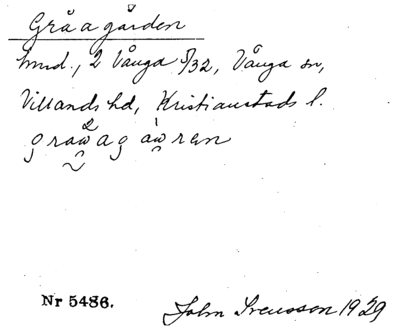 Gråagården
hmd., 2 Vånga 5/32, Vånga sn,
Villands hd, Kristianstads l.
Nr 5486.
John Svensson 1929